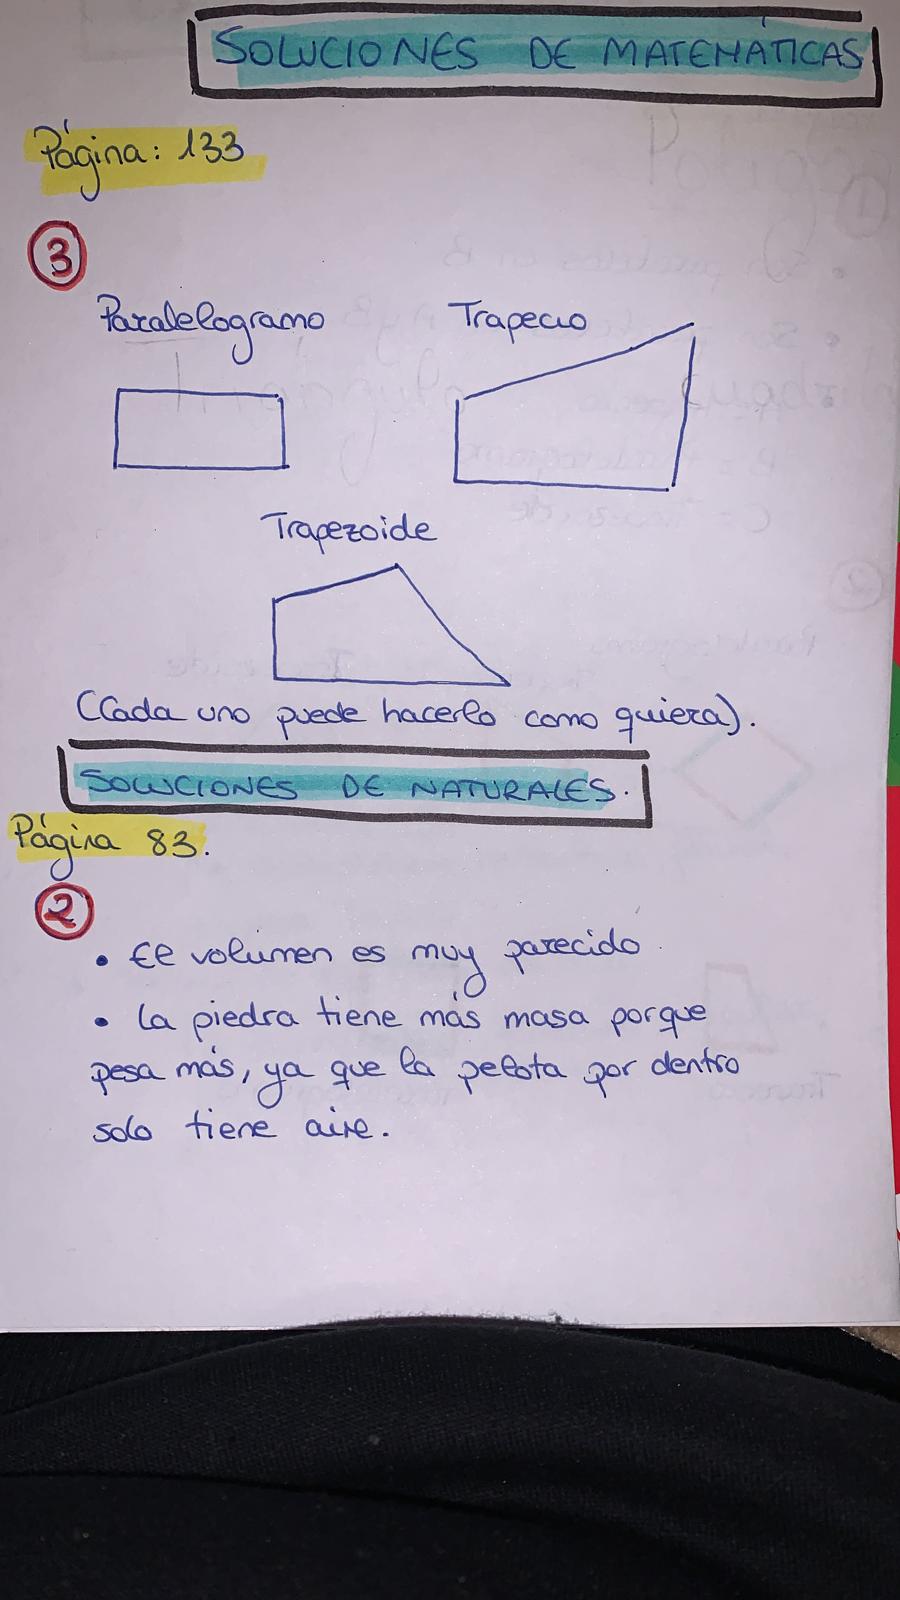 SOLUCIONES DE MATEMÁTICAS
Página: 133
3
Paralelogramo
Trapecio
Trapezoide
(Cada uno puede hacerlo como quiera).
SOLUCIONES DE NATURALES.
Página 83.
2
• El volumen es muy parecido.
• La piedra tiene más masa porque
pesa más, ya que la pelota por dentro
solo tiene aire.